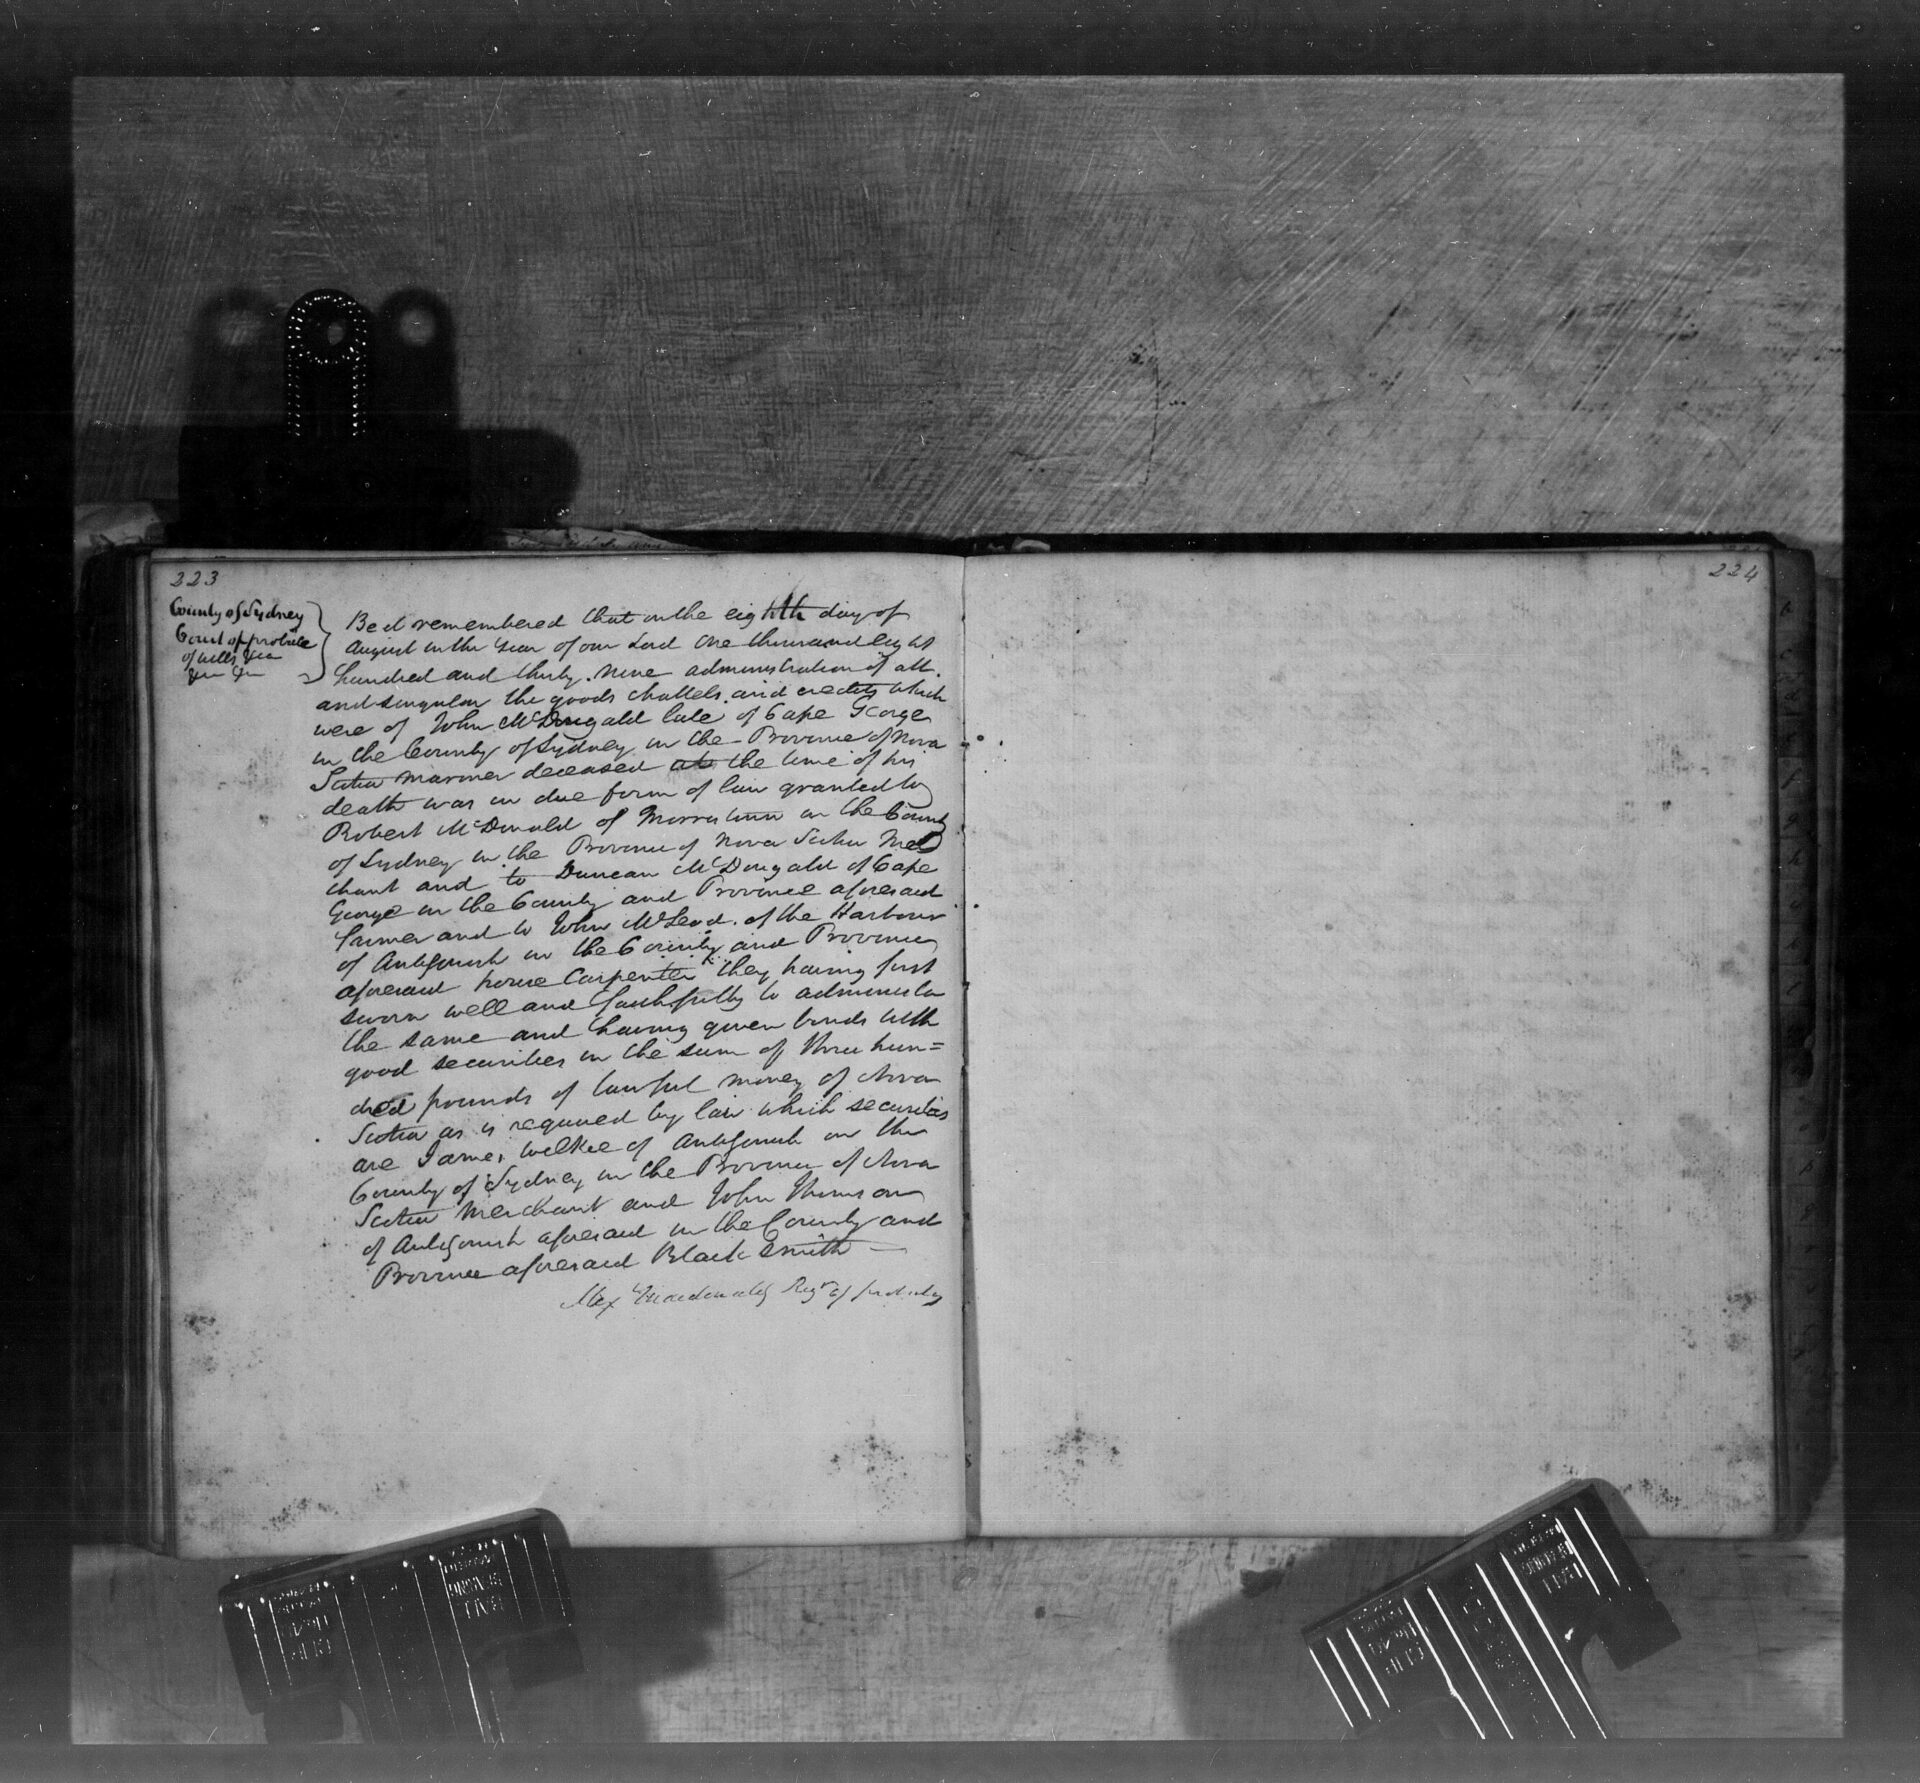 223
County of Sydney
Court of probate
of wills &ca
&ca &ca
Be it remembered that on the eighth day of
August in the Year of our Lord One thousand eight
hundred and thirty-nine administration of all
and singular the goods chattels and credits which
were of John McDougald late of Cape George
in the County of Sydney in the Province of Nova
Scotia Mariner deceased at the time of his
death was in due form of law granted to
Robert McDonald of Morristown in the County
of Sydney in the Province of Nova Scotia Mer
chant and to Duncan McDougald of Cape
George in the County and Province aforesaid
farmer and to John McLeod of the Harbour
of Antigonish in the County and Province
aforesaid house Carpenter they having first
sworn well and faithfully to administer
the same and having given bonds with
good securities in the sum of three hun=
dred pounds of lawful money of Nova
Scotia as is required by law which securities
are James Wilkie of Antigonish in the
County of Sydney in the Province of Nova
Scotia Merchant and John Thomson
of Antigonish aforesaid in the County and
Province aforesaid Black Smith
Alex Macdonald Regr of probate
224